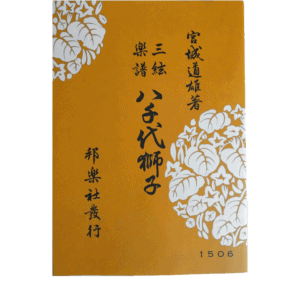 宮城道雄著
三絃
楽譜
八千代獅子
邦楽社發行
1506